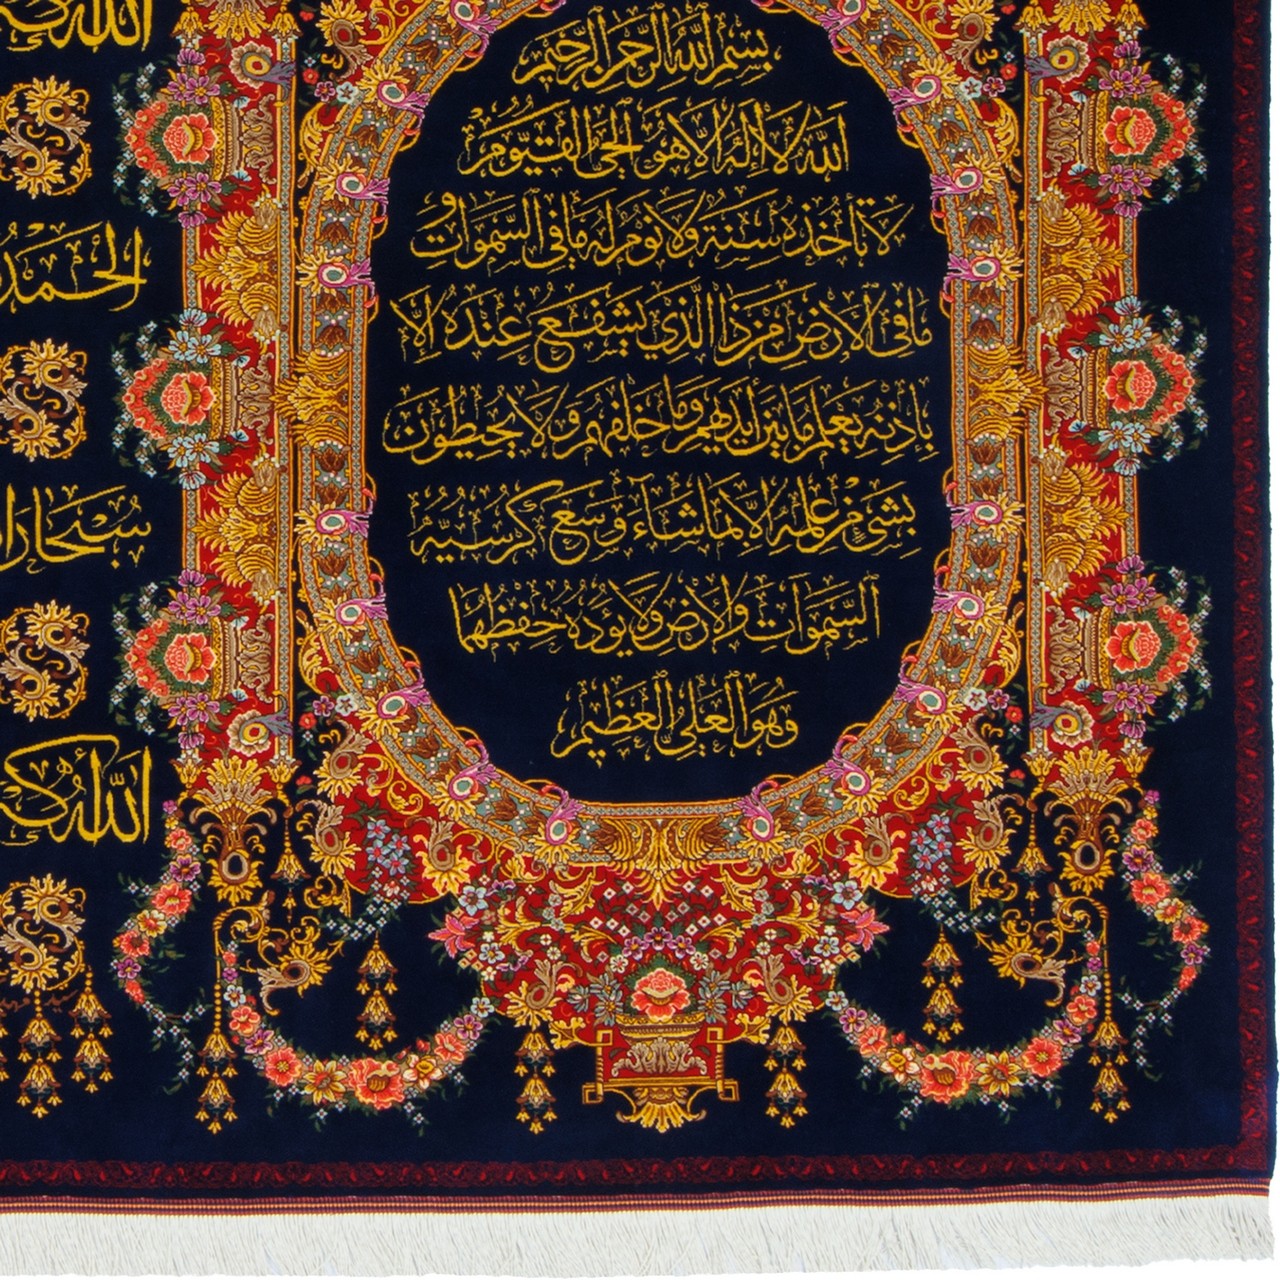 بسم الله الرحمن الرحيم
الله لا إله إلا هو الحي القيوم
لا تأخذه سنة ولا نوم له ما في السموات و
ما في الأرض من ذا الذي يشفع عنده إلا
بإذنه يعلم ما بين أيديهم وما خلفهم ولا يحيطون
بشيء من علمه إلا بما شاء وسع كرسيه
السموات والأرض ولا يؤده حفظهما
وهو العلي العظيم
الله
الحمد
سبحان
الله